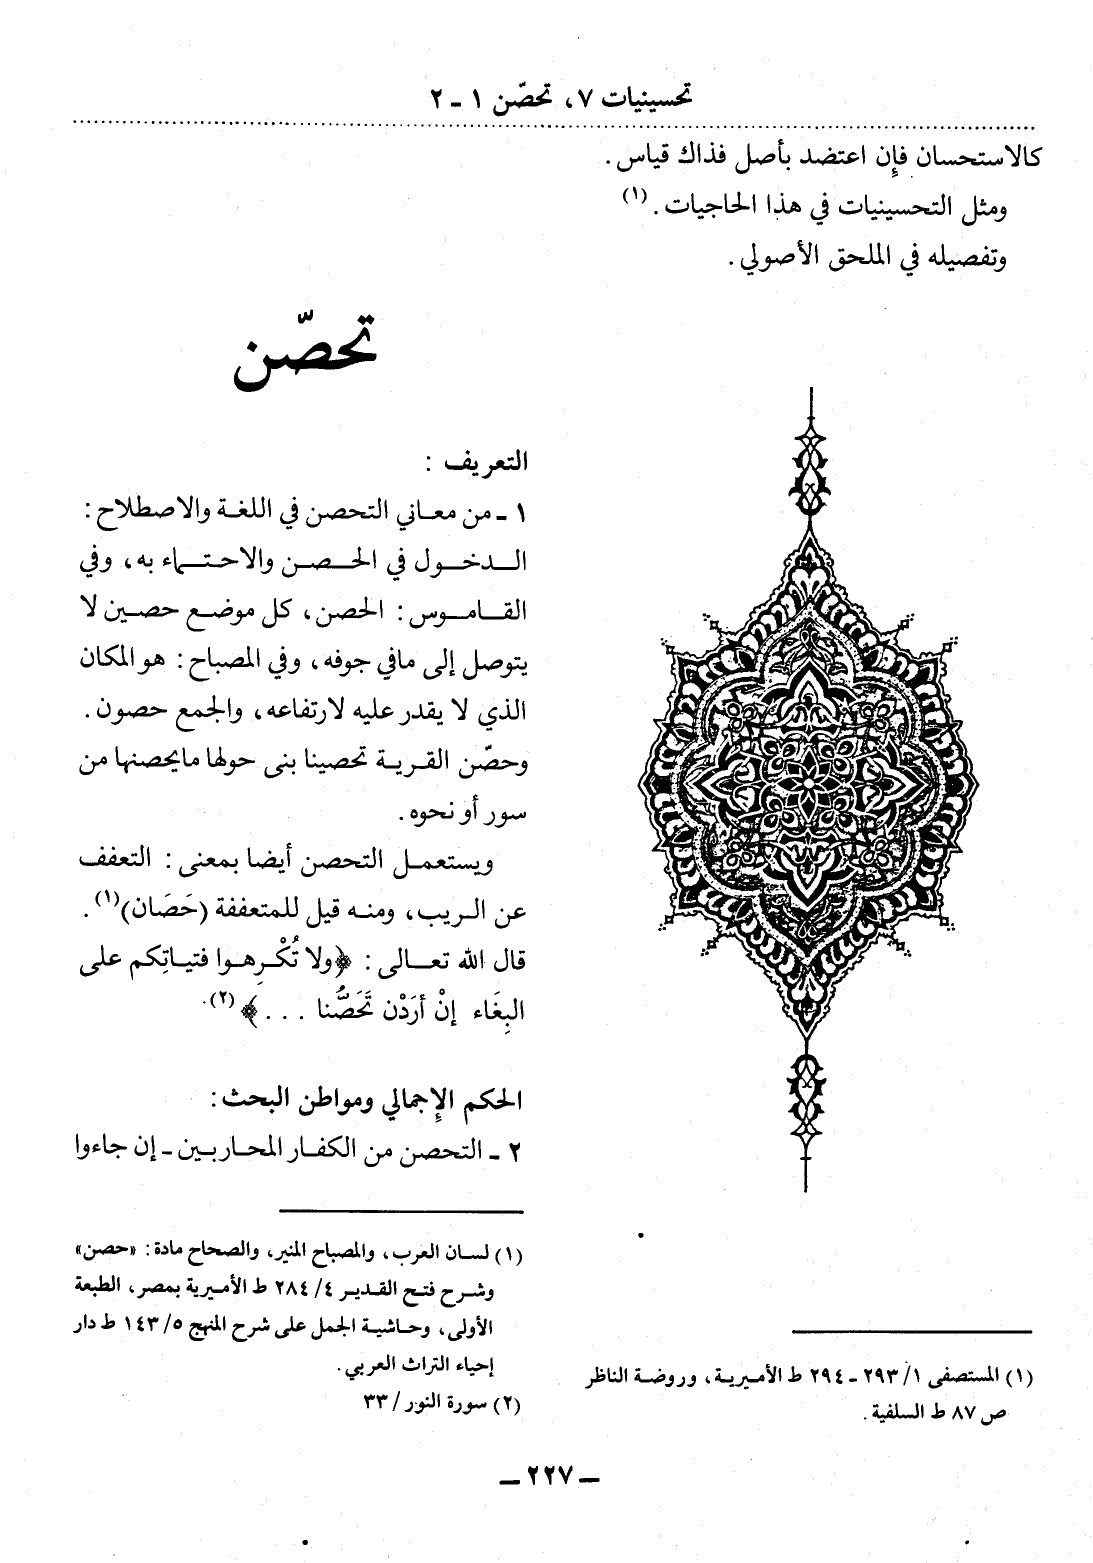 تحسينيات ٧، تحصّن ١ - ٢
كالاستحسان فإن اعتضد بأصل فذاك قياس.
ومثل التحسينيات في هذا الحاجيات. (١)
وتفصيله في الملحق الأصولي.
(١) المستصفى ١/ ٢٩٣ - ٢٩٤ ط الأميرية، وروضة الناظر
ص ٨٧ ط السلفية.
تحصّن
التعريف :
١ - من معاني التحصن في اللغة والاصطلاح :
الدخول في الحصن والاحتماء به، وفي
القاموس : الحصن، كل موضع حصين لا
يتوصل إلى مافي جوفه، وفي المصباح : هو المكان
الذي لا يقدر عليه لارتفاعه، والجمع حصون.
وحصّن القرية تحصينا بنى حولها مايحصنها من
سور أو نحوه.
ويستعمل التحصن أيضا بمعنى : التعفف
عن الريب، ومنه قيل للمتعففة (حَصَان)(١).
قال الله تعالى : ﴿ولا تُكْرِهوا فتياتِكم على
البِغَاء إنْ أرَدْن تَحَصُّنا . . . ﴾ (٢).
الحكم الإجمالي ومواطن البحث :
٢ - التحصن من الكفار المحاربين - إن جاءوا
(١) لسان العرب، والمصباح المنير، والصحاح مادة : «حصن»
وشرح فتح القدير ٤/ ٢٨٤ ط الأميرية بمصر، الطبعة
الأولى، وحاشية الجمل على شرح المنهج ٥/ ١٤٣ ط دار
إحياء التراث العربي.
(٢) سورة النور / ٣٣
- ٢٢٧ -